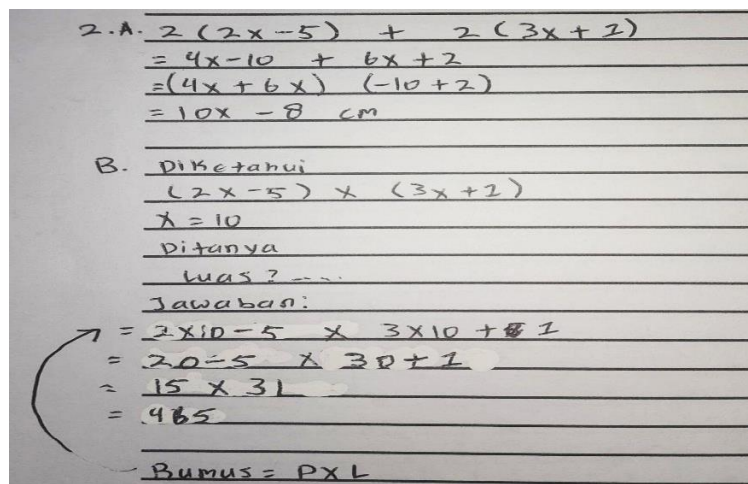 2.A. 2 (2x-5) + 2 (3x+1)
= 4x-10 + 6x+2
=(4x+6x) (-10+2)
= 10x - 8 cm
B. Diketahui
(2x-5) x (3x+1)
x = 10
Ditanya
Luas? ....
Jawaban:
= 2x10-5 x 3x10+1
= 20-5 x 30+1
= 15 x 31
= 465
Rumus = PxL